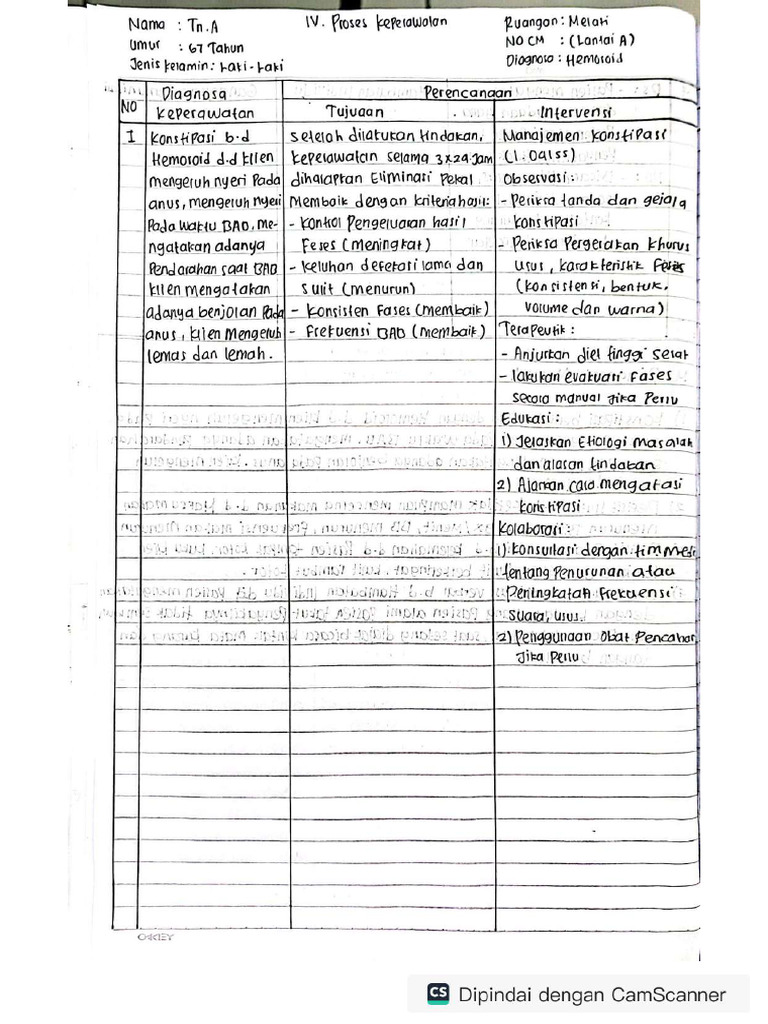 Nama : Tn. A
IV. Proses Keperawatan
Ruangan : Melati
Umur : 67 Tahun
NO CM : (Lantai A)
Jenis kelamin : Laki - Laki
Diagnosa : Hemoroid
NO
Diagnosa
Keperawatan
Perencanaan
Tujuan
Intervensi
I
Konstipasi b.d
Hemoroid d.d klien
mengeluh nyeri Pada
anus, mengeluh nyeri
Pada waktu BAB, me-
ngatakan adanya
Pendarahan saat BAB
klien mengatakan
adanya benjolan Pada
anus, klien Mengeluh
lemas dan lemah.
setelah dilakukan tindakan,
keperawatan selama 3x24 Jam
diharapkan Eliminasi Fekal
Membaik dengan kriteria hasil:
- Kontrol Pengeluaran hasil
Feses (meningkat)
- Keluhan defekasi lama dan
sulit (menurun)
- Konsisten Fases (membaik)
- Frekuensi BAB (membaik)
Manajemen konstipasi
(1.04155)
Observasi :
- Periksa tanda dan gejala
konstipasi
- Periksa Pergerakan khusus
usus, karakteristik Feses
(konsistensi, bentuk,
volume dan warna)
Terapeutik :
- Anjurkan diet tinggi serat
- lakukan evakuasi Fases
secara manual Jika Perlu
Edukasi :
1) Jelaskan Etiologi masalah
dan alasan tindakan
2) Ajarkan cara mengatasi
konstipasi
Kolaborasi :
1) Konsultasi dengan tim medis
tentang Penurunan atau
Peningkatan Frekuensi
suara usus.
2) Penggunaan Obat Pencahar
Jika Perlu
OKEY
CS Dipindai dengan CamScanner